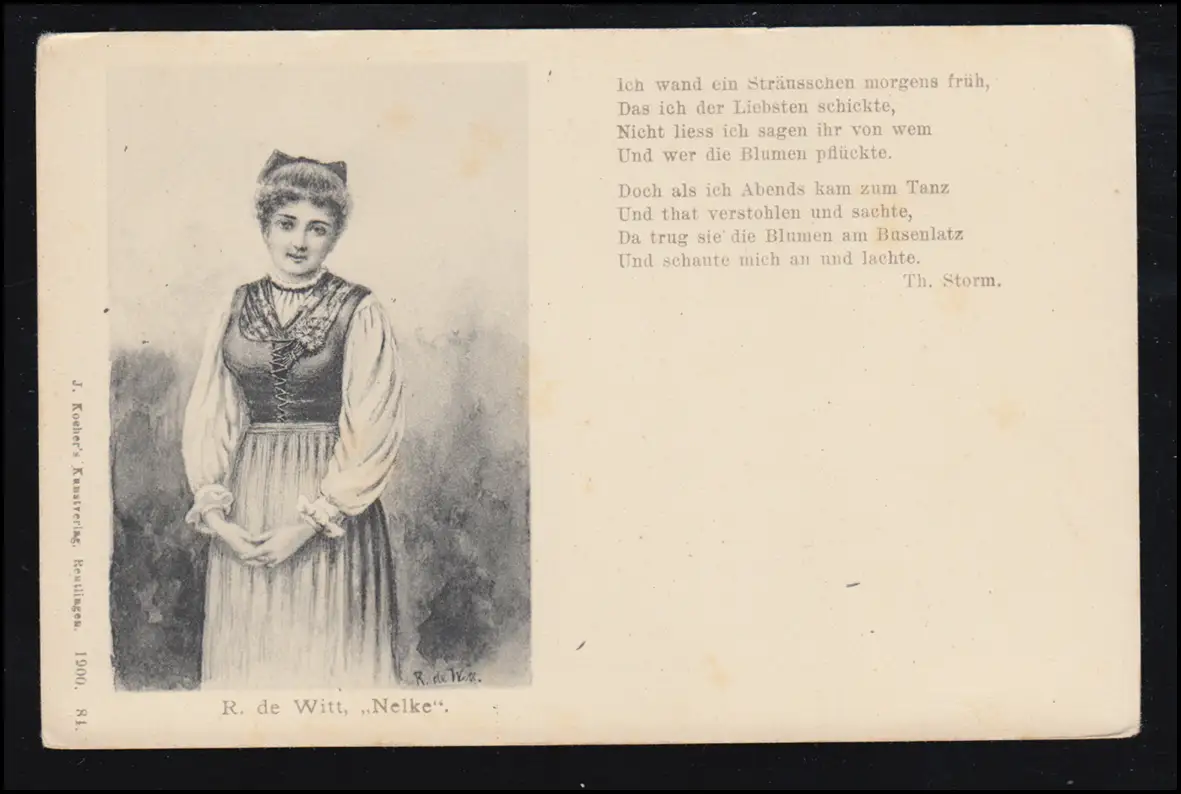 Ich wand ein Sträusschen morgens früh,
Das ich der Liebsten schickte,
Nicht liess ich sagen ihr von wem
Und wer die Blumen pflückte.
Doch als ich Abends kam zum Tanz
Und that verstohlen und sachte,
Da trug sie die Blumen am Busenlatz
Und schaute mich an und lachte.
Th. Storm.
R. de Witt.
R. de Witt, „Nelke“.
J. Kocher's Kunstverlag, Reutlingen. 1900. 84.